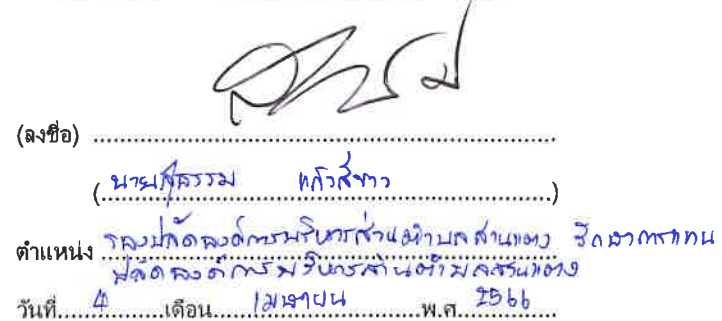 (ลงชื่อ) ....................................................
(นายสุธรรม แก้วสีขาว)
ตำแหน่ง รองปลัดองค์การบริหารส่วนตำบลสานแตง รักษาการแทน
ปลัดองค์การบริหารส่วนตำบลสานแตง
วันที่ 4 เดือน เมษายน พ.ศ. 2566